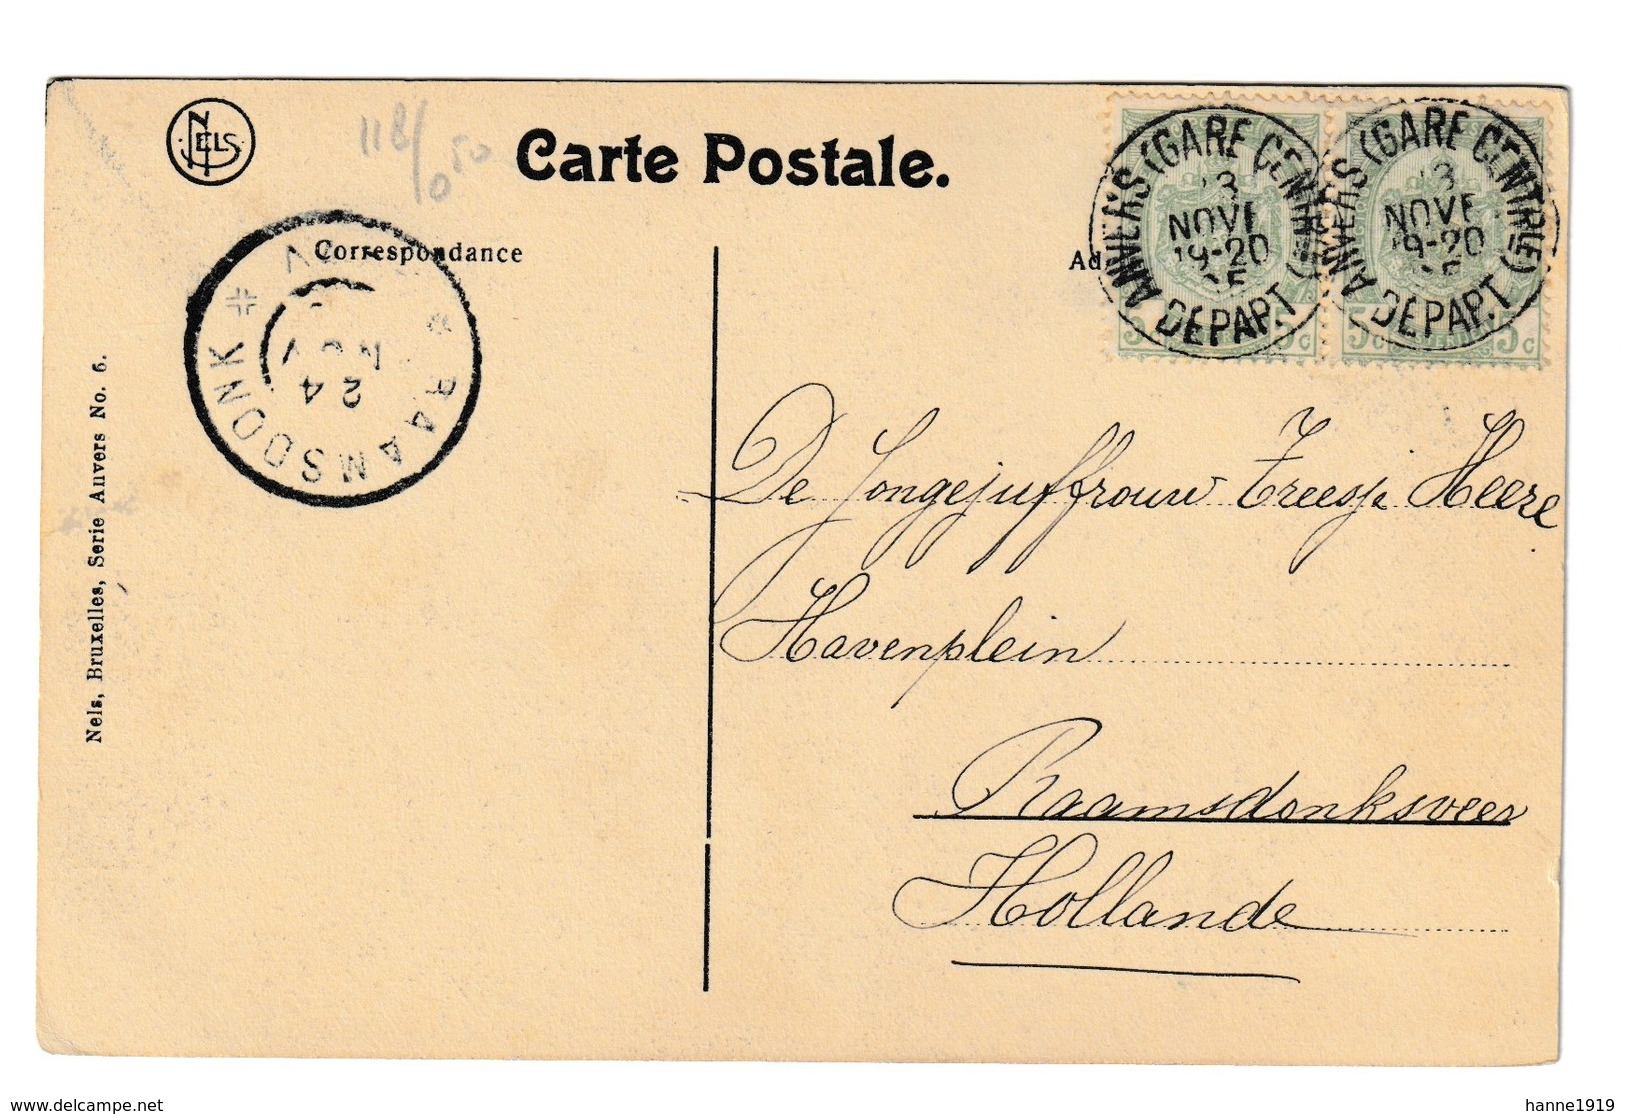 NELS
118/0 50
Carte Postale.
Correspondance
Ad
ANVERS (GARE CENTRALE)
NOVE
19-20
DEPART
ANVERS (GARE CENTRALE)
NOVE
19-20
DEPART
5c
5c
5c
RAAMSDONK
24
NOV
Nels, Bruxelles, Serie Anvers No. 6.
De Jongejuffrouw Treesje Heere
Havenplein
Raamsdonksveer
Hollande
www.delcampe.net
hanne1919